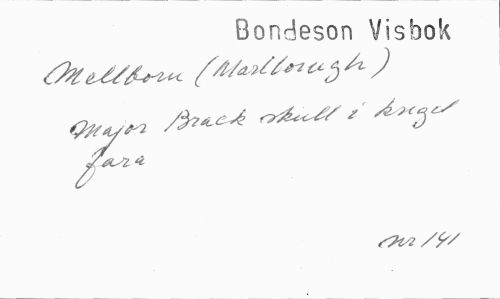 Bondeson Visbok
Mellborn (Marlborough)
Major Brack skull i kriget
fara
nr 141